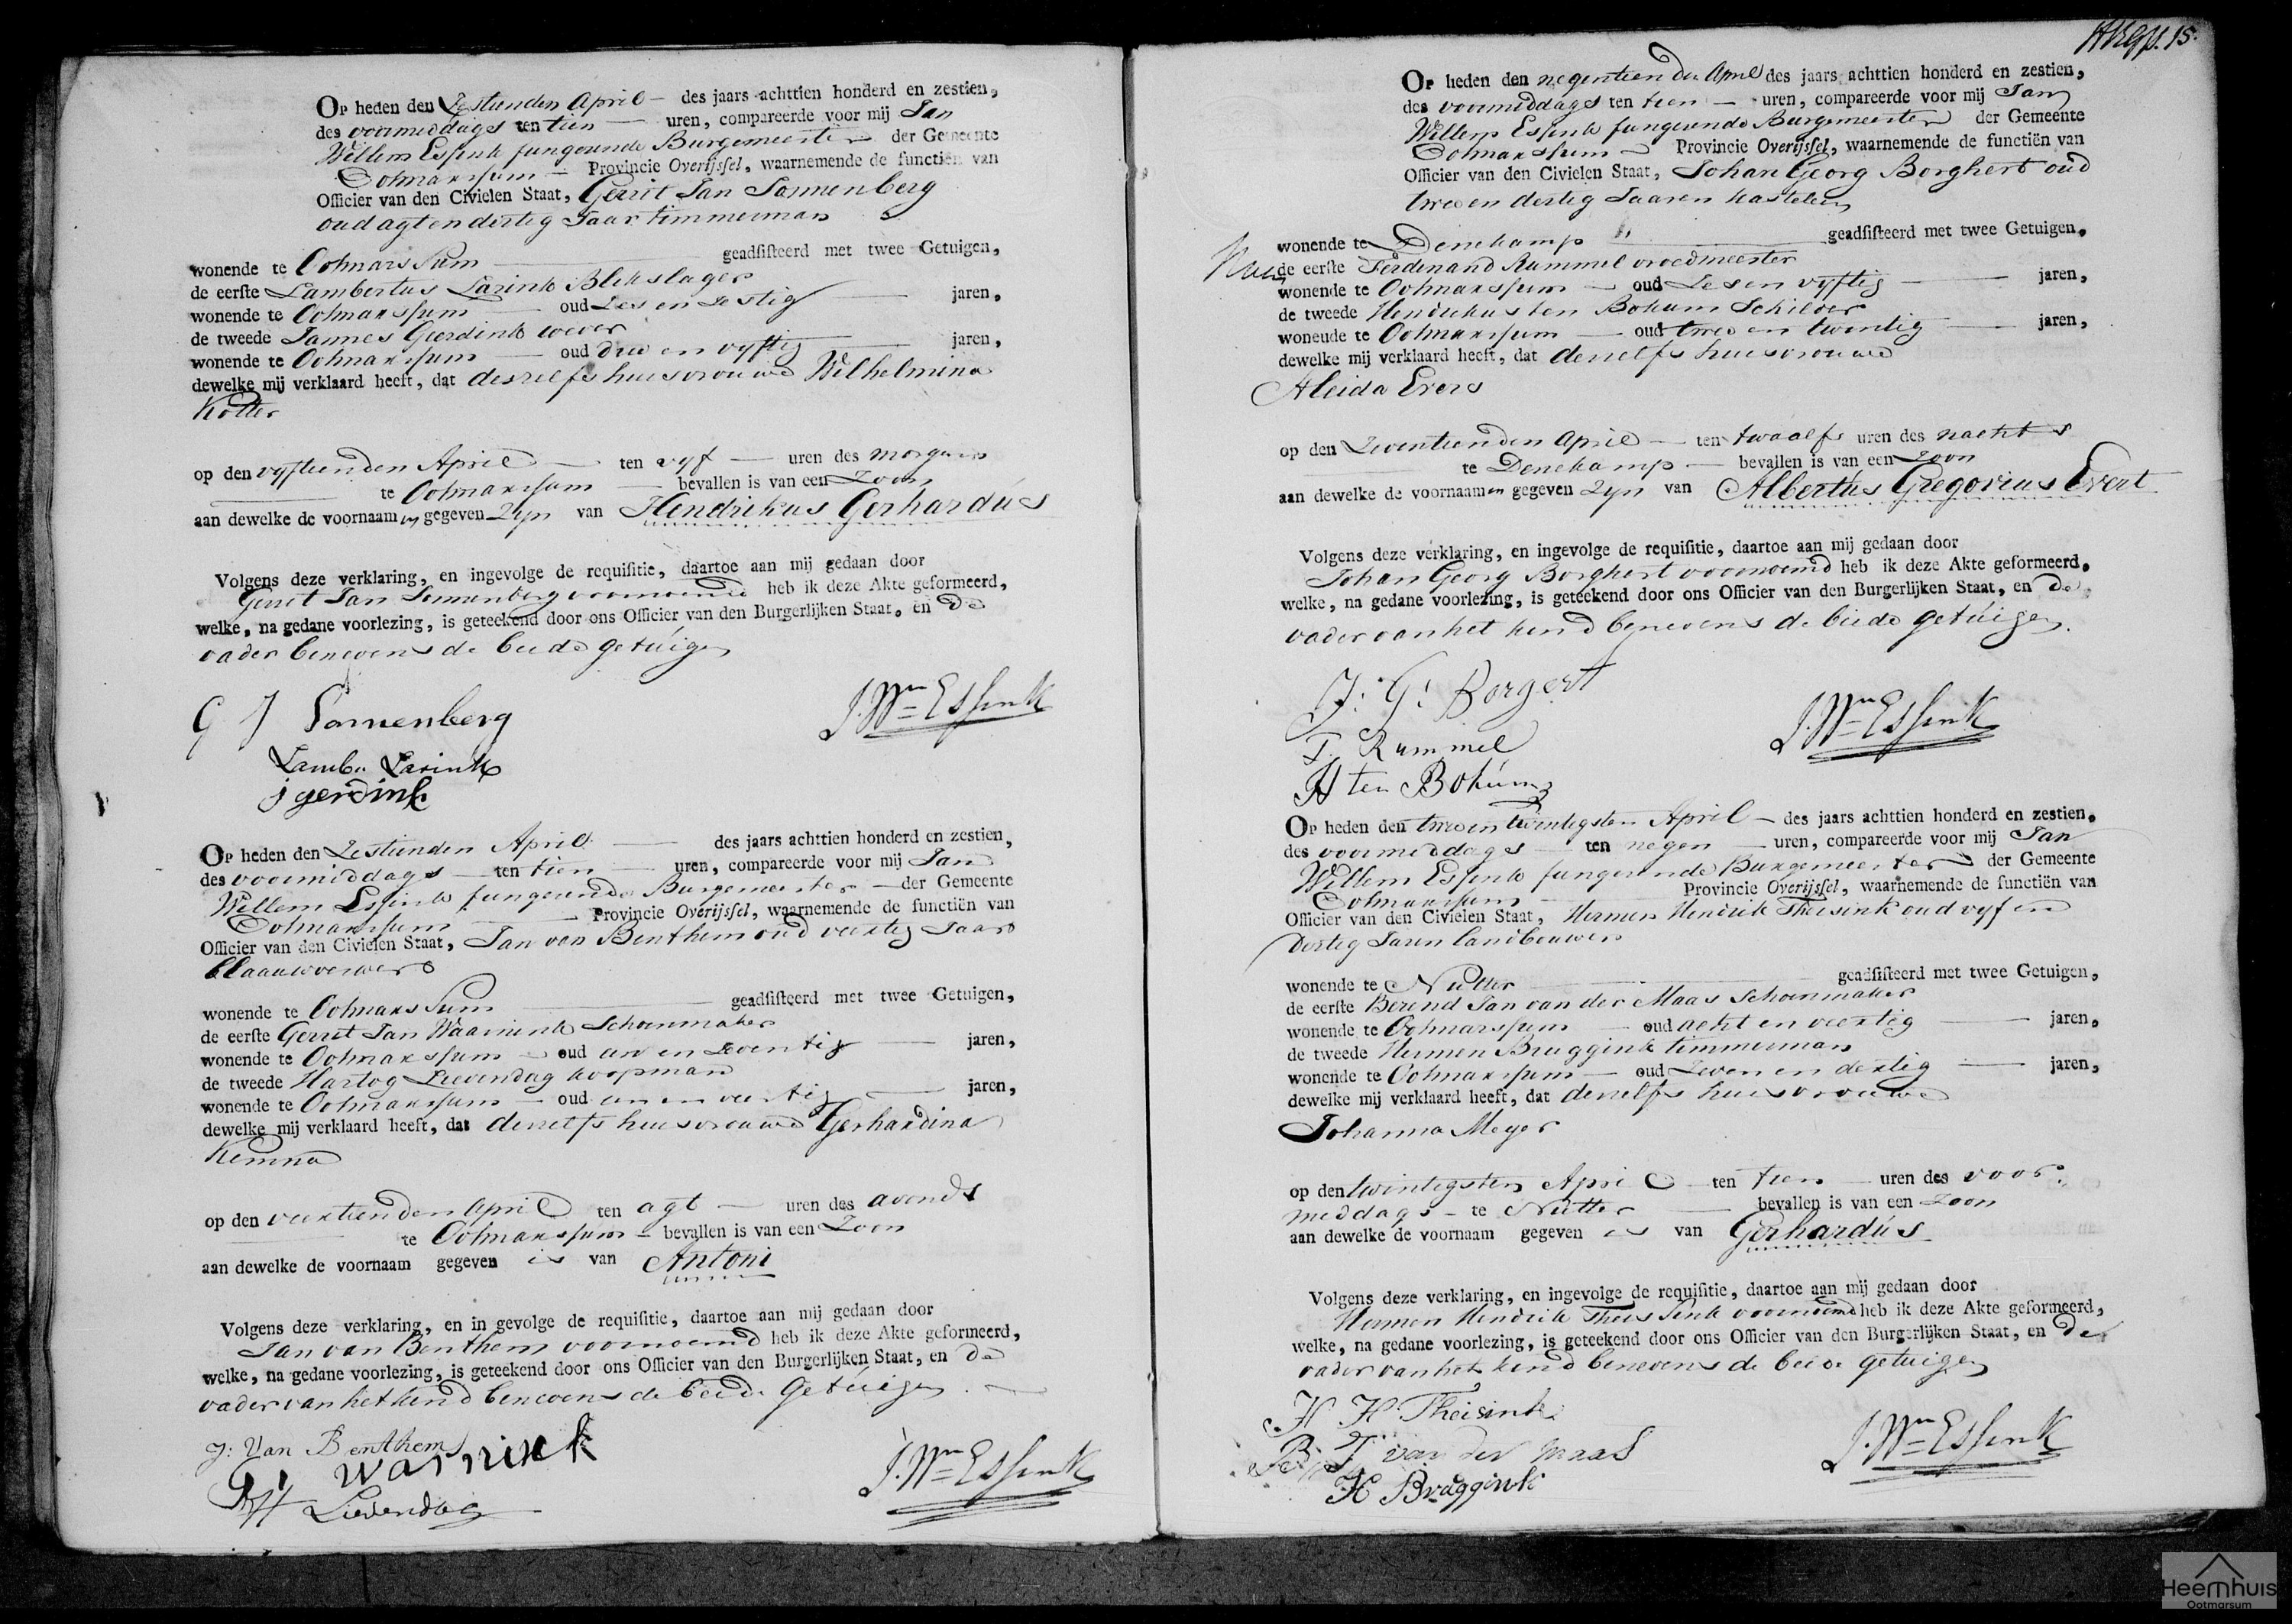 Op heden den Zestienden April — des jaars achttien honderd en zestien,
des voormiddags ten tien — uren, compareerde voor mij Jan
Willem Essink fungerende Burgemeester der Gemeente
Ootmarssum — Provincie Overijsſel, waarnemende de functiën van
Officier van den Civielen Staat, Gerrit Jan Sonnenberg
oud agt en dertig Jaar timmerman
wonende te Ootmarssum geadſiſteerd met twee Getuigen,
de eerſte Lambertus Larink Blikslager
wonende te Ootmarssum — oud Zes en Zestig — jaren,
de tweede Jannes Geerdink wever
wonende te Ootmarssum — oud drie en vyftig — jaren,
dewelke mij verklaard heeft, dat deszelfs huisvrouwe Wilhelmina
Kotter
op den vyftienden April — ten vyf — uren des morgens
te Ootmarssum — bevallen is van een Zoon
aan dewelke de voornaamen gegeven zyn van Hendrikus Gerhardús
Volgens deze verklaring, en ingevolge de requiſitie, daartoe aan mij gedaan door
Gerrit Jan Sonnenberg voornoemd heb ik deze Akte geformeerd,
welke, na gedane voorlezing, is geteekend door ons Officier van den Burgerlijken Staat, en de
vader benevens de beide getúigen
G J Sonnenberg
J. Wm Essink
Lamb. Larink
j gerdink
Op heden den Zestienden April — des jaars achttien honderd en zestien,
des voormiddags — ten tien — uren, compareerde voor mij Jan
Willem Essink fungerende Burgemeester — der Gemeente
Ootmarssum — Provincie Overijsſel, waarnemende de functiën van
Officier van den Civielen Staat, Jan van Benthem oud veertig Jaar
blaauwverwer
wonende te Ootmarssum geadſiſteerd met twee Getuigen,
de eerſte Gerrit Jan Waarnink Schoenmaker
wonende te Ootmarssum — oud een en Zeventig — jaren,
de tweede Hartog Lievendag koopman
wonende te Ootmarssum — oud een en veertig — jaren,
dewelke mij verklaard heeft, dat denzelfs huisvrouwe Gerhardina
Kemna
op den veertienden April ten agt — uren des avonds
te Ootmarssum — bevallen is van een Zoon
aan dewelke de voornaam gegeven is van Antoni
Volgens deze verklaring, en in gevolge de requiſitie, daartoe aan mij gedaan door
Jan van Benthem voornoemd heb ik deze Akte geformeerd,
welke, na gedane voorlezing, is geteekend door ons Officier van den Burgerlijken Staat, en de
vader van het kind benevens de beide Getúigen
J: Van Benthem
warnink
J. Wm Essink
H Lievendag
15.
Op heden den negentienden April des jaars achttien honderd en zestien,
des voormiddags ten tien — uren, compareerde voor mij Jan
Willem Essink fungerende Burgemeester der Gemeente
Ootmarssum — Provincie Overijsſel, waarnemende de functiën van
Officier van den Civielen Staat, Johan Georg Borghert oud
twee en dertig Jaaren kastelein
wonende te Denekamp geadſiſteerd met twee Getuigen,
de eerſte Ferdinand Rummel vroedmeester
wonende te Ootmarssum — oud Zes en vyftig — jaren,
de tweede Hendrikus ten Bokum Schilder
wonende te Ootmarssum — oud twee en twintig — jaren,
dewelke mij verklaard heeft, dat denzelfs huisvrouwe
Aleida Evers
op den Zeventienden April — ten twaalf uren des nachts
te Denekamp — bevallen is van een Zoon
aan dewelke de voornaamen gegeven Zyn van Albertus Gregorius Evert
Volgens deze verklaring, en ingevolge de requiſitie, daartoe aan mij gedaan door
Johan Georg Borghert voornoemd heb ik deze Akte geformeerd,
welke, na gedane voorlezing, is geteekend door ons Officier van den Burgerlijken Staat, en de
vader van het kind benevens de beide getúigen.
J: G: Borgert
J. Wm Essink
F. Rummel
H ten Bokúm
Op heden den twee en twintigsten April — des jaars achttien honderd en zestien,
des voormiddags — ten negen — uren, compareerde voor mij Jan
Willem Essink fungerende Burgemeester der Gemeente
Ootmarssum — Provincie Overijsſel, waarnemende de functiën van
Officier van den Civielen Staat, Hermen Hendrik Theisink oud vyf en
dertig Jaren landbouwer
wonende te Nutter geadſiſteerd met twee Getuigen,
de eerſte Berend Jan van der Maas Schoenmaker
wonende te Ootmarssum — oud acht en veertig — jaren,
de tweede Hermen Bruggink timmerman
wonende te Ootmarssum — oud Zeven en dertig — jaren,
dewelke mij verklaard heeft, dat denzelfs huisvrouwe
Johanna Meyer
op den twintigsten April — ten tien — uren des voor
middags — te Nutter — bevallen is van een Zoon
aan dewelke de voornaam gegeven is van Gerhardús
Volgens deze verklaring, en ingevolge de requiſitie, daartoe aan mij gedaan door
Hermen Hendrik Theissink voornoemd heb ik deze Akte geformeerd,
welke, na gedane voorlezing, is geteekend door ons Officier van den Burgerlijken Staat, en de
vader van het kind benevens de beide getuigen
H H Theisink
J. Wm Essink
B: J van der maas
H Bruggink
Heemhuis
Ootmarsum